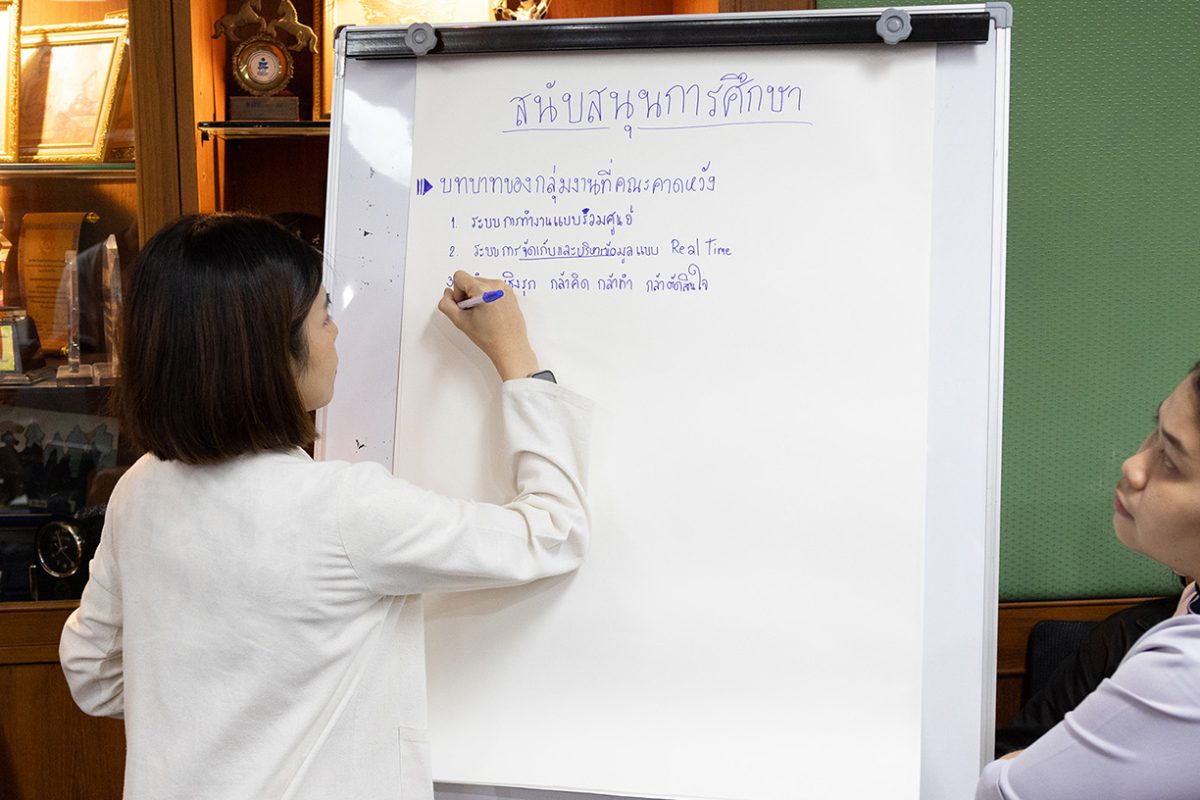 สนับสนุนการศึกษา
บทบาทของกลุ่มงานที่คณะคาดหวัง
1. ระบบการทำงานแบบรวมศูนย์
2. ระบบการจัดเก็บและบริหารข้อมูลแบบ Real Time
3 กล้าคิด กล้าทำ กล้าตัดสินใจ